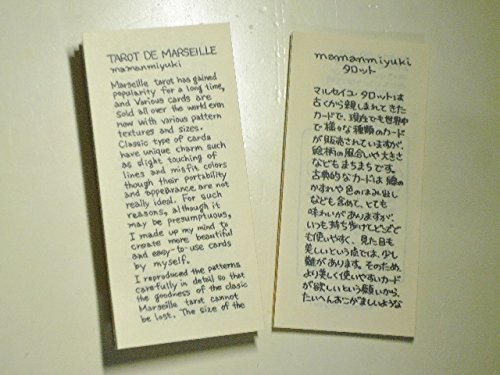 TAROT DE MARSEILLE
mamanmiyuki
Marseille tarot has gained
popularity for a long time,
and Various cards are
sold all over the world even
now with various pattern
textures and sizes.
Classic type of cards
have unique charm such
as slight touching of
lines and misfit colors
though their portability
and appearance are not
really ideal. For such
reasons, although it
may be presumptuous,
I made up my mind to
create more beautiful
and easy-to-use cards
by myself.
I reproduced the patterns
carefully in detail so that
the goodness of the clasic
Marseille tarot cannot
be lost. The size of the
mamanmiyuki
タロット
マルセイユ・タロットは
古くから親しまれてきた
カードで、現在でも世界中
で様々な種類のカード
が販売されていますが、
絵柄の風合いや大きさ
などもまちまちです。
古典的なカードは線の
かすれや色のはみ出し
なども含めて、とても
味わいがありますが、
いつも持ち歩けてどこででも
使いやすく、見た目も
美しいという点では、少し
難があります。そのため、
より美しく使いやすいカード
が欲しいという願いから、
たいへんおこがましいような